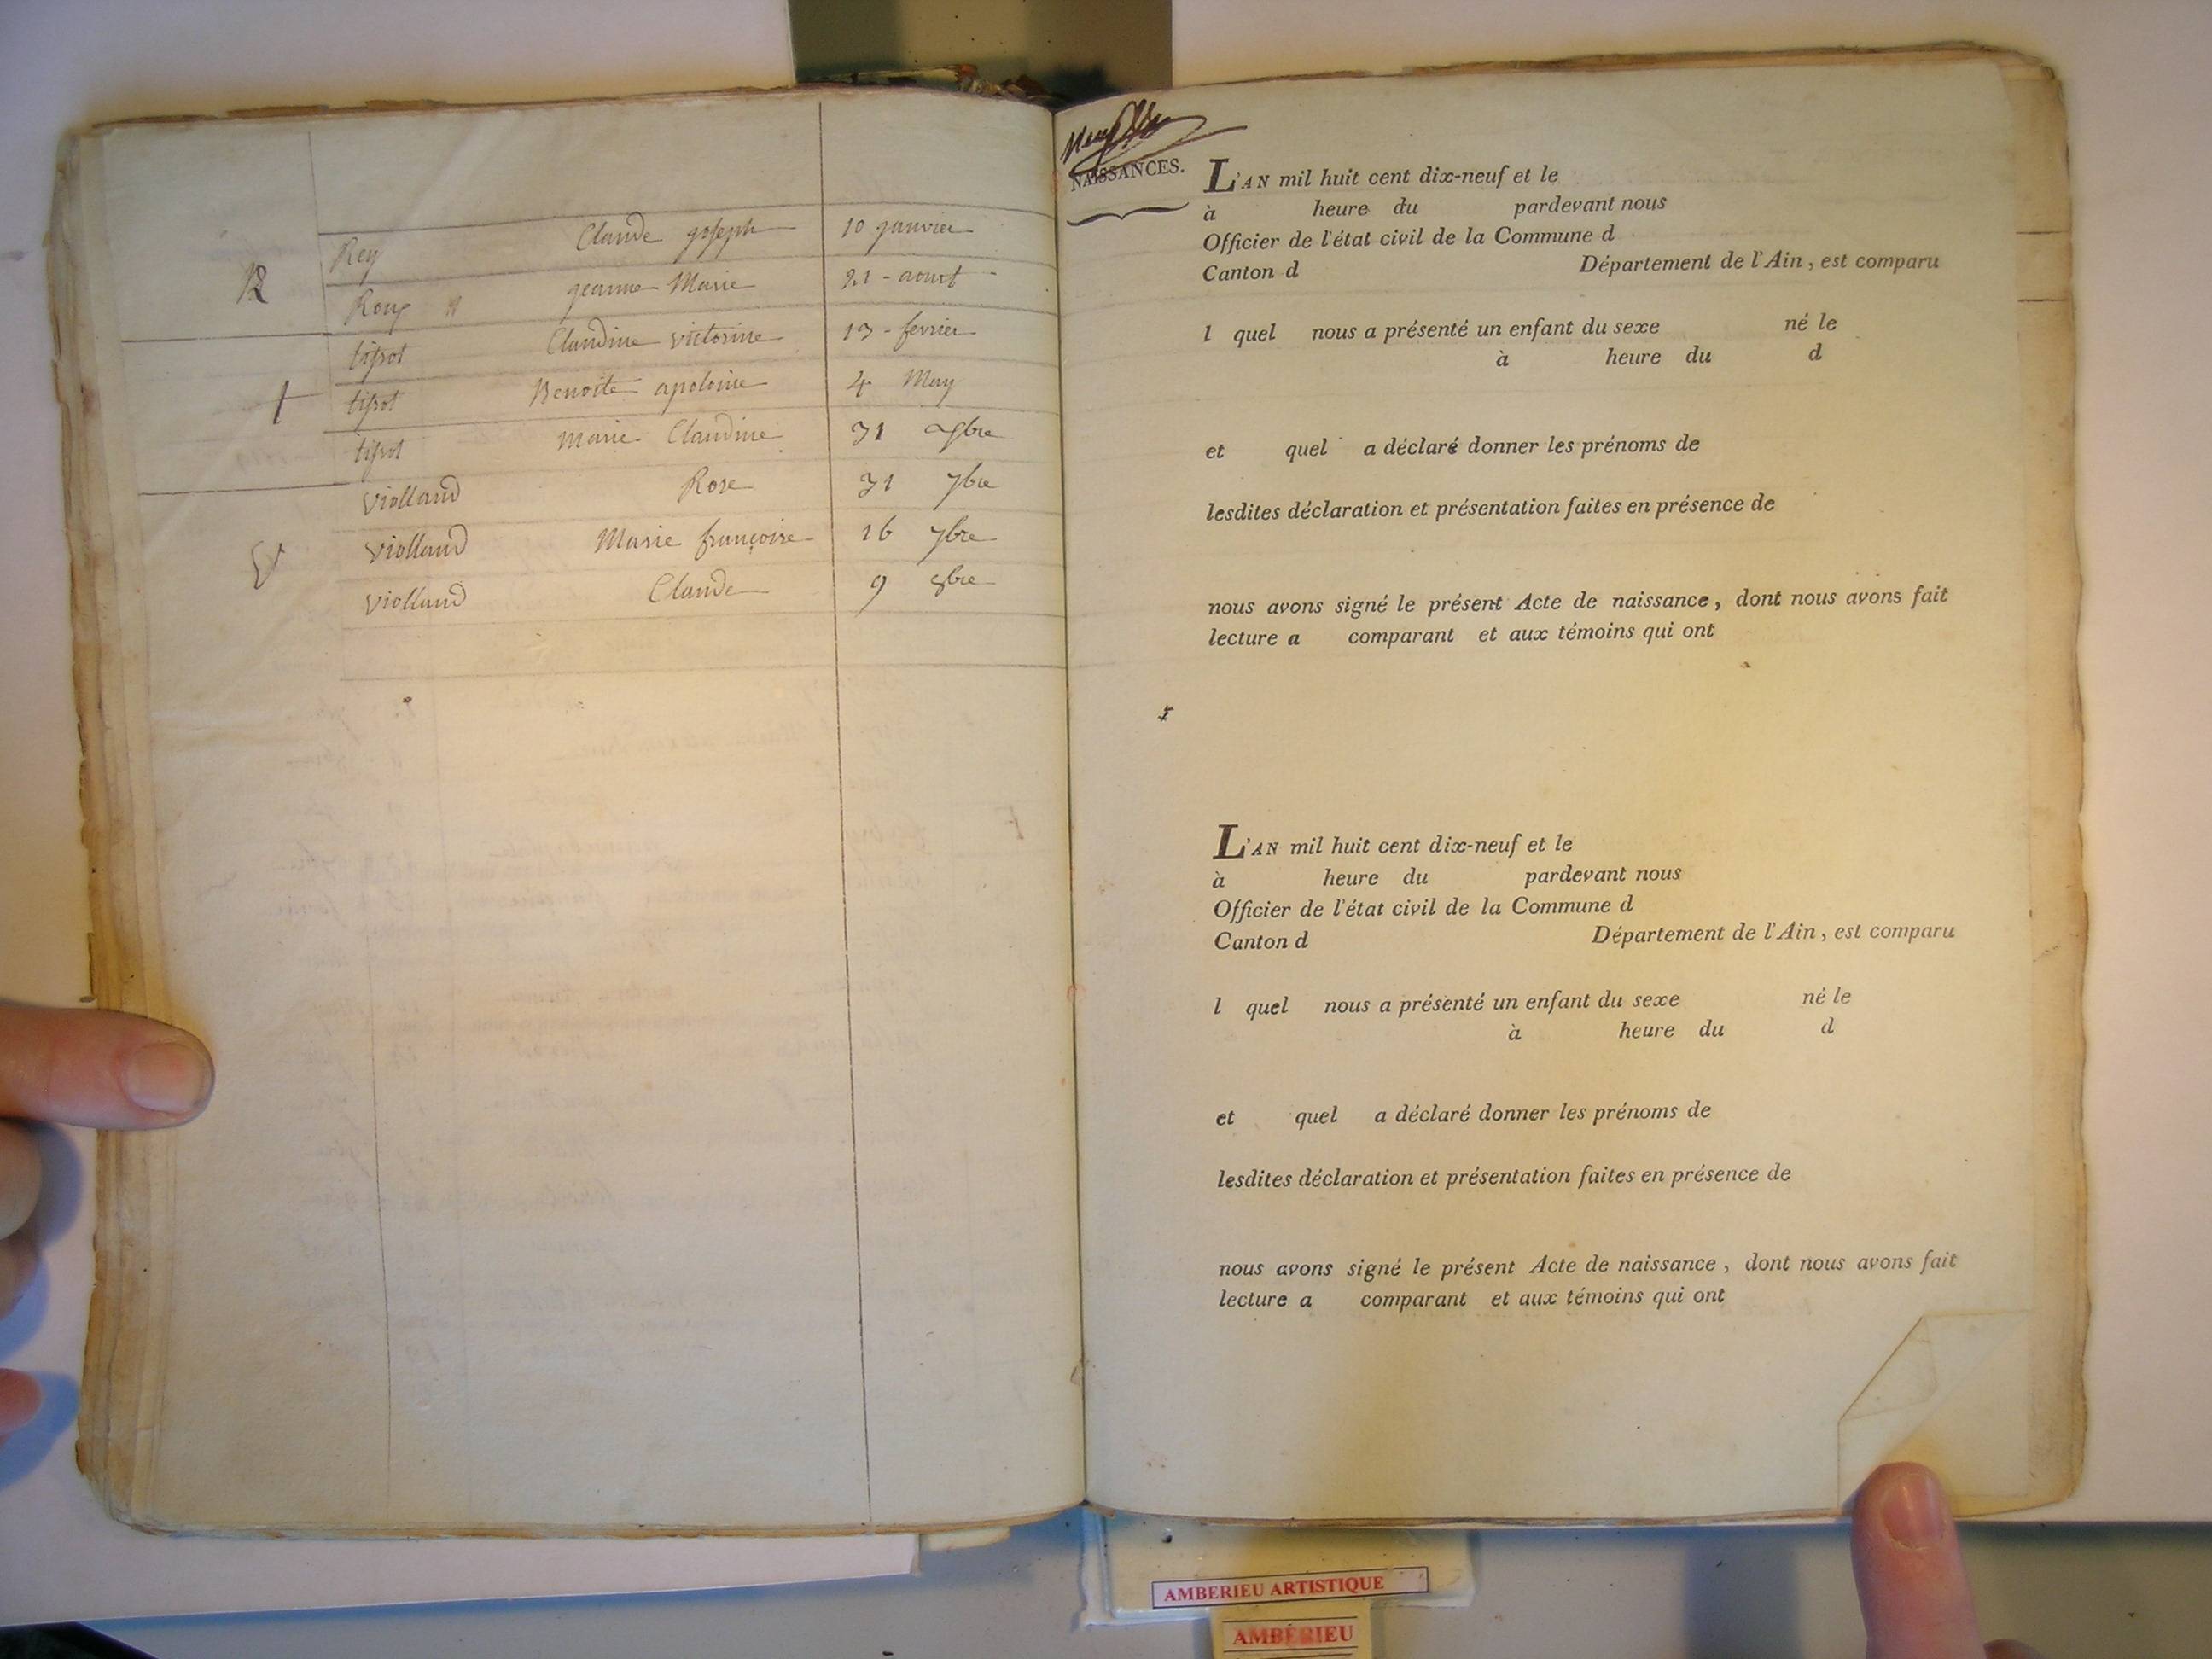 R
Rey Claude joseph 10 janvier
Roux jeanne Marie 21 - aout
t
tissot Claudine victorine 13 - fevrier
tissot Benoite apoloine 4 May
tissot Marie Claudine 31
V
Violland Rose 31 7bre
Violland Marie françoise 16 7bre
Violland Claude 9 8bre
NAISSANCES.
L'AN mil huit cent dix-neuf et le
à heure du pardevant nous
Officier de l'état civil de la Commune d
Canton d Département de l'Ain, est comparu
l quel nous a présenté un enfant du sexe né le
à heure du d
et quel a déclaré donner les prénoms de
lesdites déclaration et présentation faites en présence de
nous avons signé le présent Acte de naissance, dont nous avons fait
lecture a comparant et aux témoins qui ont
L'AN mil huit cent dix-neuf et le
à heure du pardevant nous
Officier de l'état civil de la Commune d
Canton d Département de l'Ain, est comparu
l quel nous a présenté un enfant du sexe né le
à heure du d
et quel a déclaré donner les prénoms de
lesdites déclaration et présentation faites en présence de
nous avons signé le présent Acte de naissance, dont nous avons fait
lecture a comparant et aux témoins qui ont
AMBERIEU ARTISTIQUE
AMBERIEU